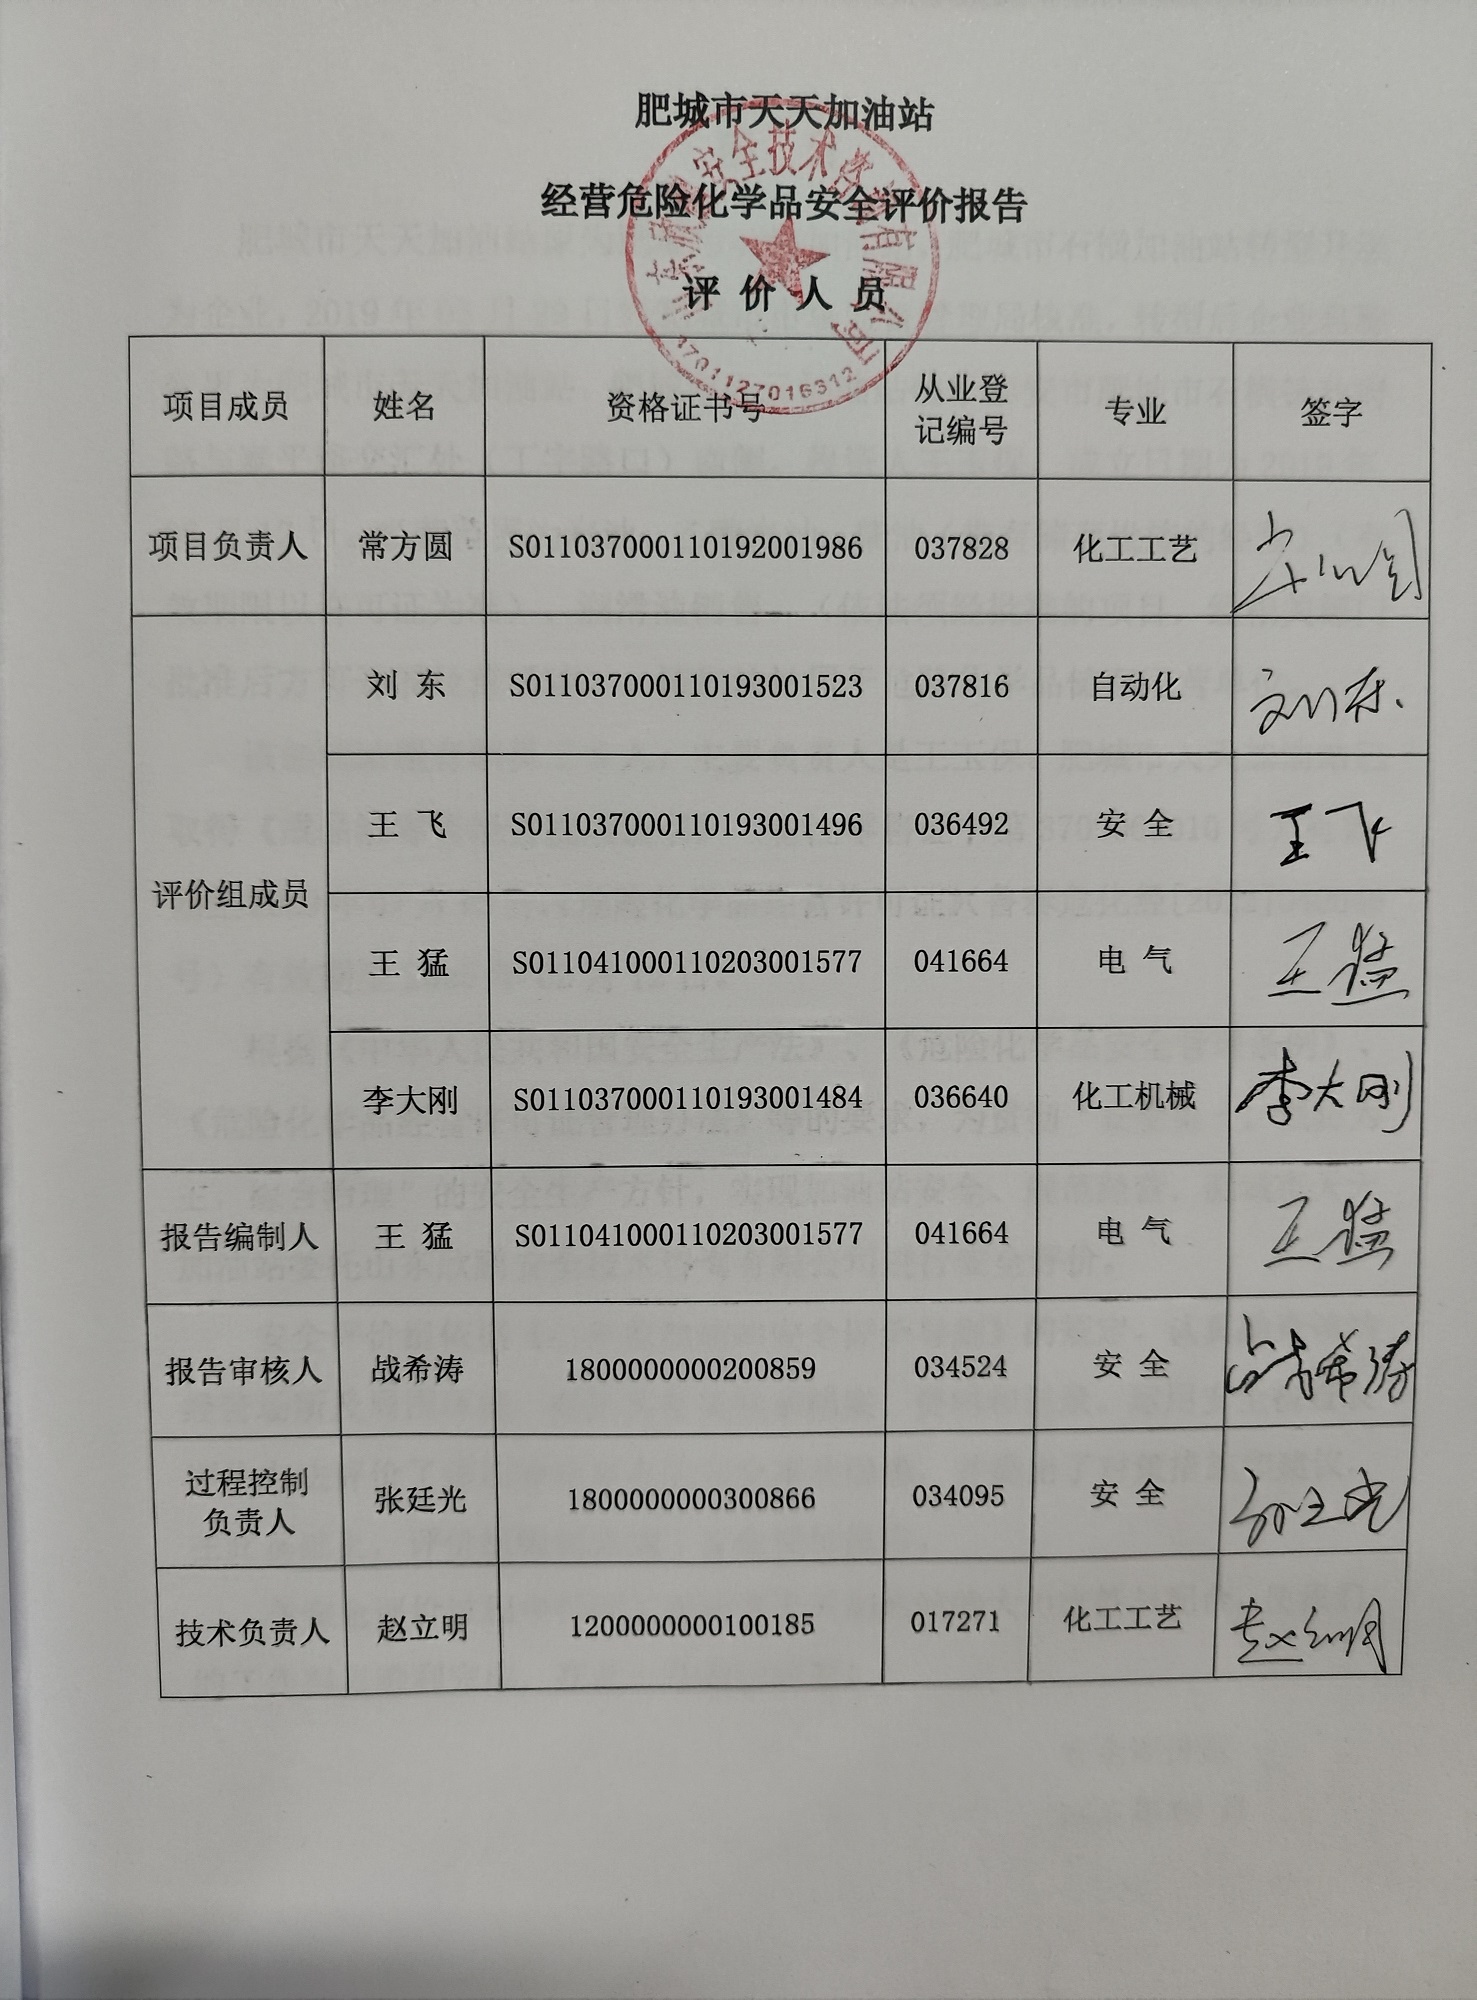 肥城市天天加油站
经营危险化学品安全评价报告
评 价 人 员
安全技术
有限公司
3701127016312
项目成员 姓名 资格证书号 从业登记编号 专业 签字
项目负责人 常方圆 S011037000110192001986 037828 化工工艺
评价组成员 刘 东 S011037000110193001523 037816 自动化 刘东
王 飞 S011037000110193001496 036492 安 全 王飞
王 猛 S011041000110203001577 041664 电 气 王猛
李大刚 S011037000110193001484 036640 化工机械 李大刚
报告编制人 王 猛 S011041000110203001577 041664 电 气 王猛
报告审核人 战希涛 1800000000200859 034524 安 全 战希涛
过程控制
负责人 张廷光 1800000000300866 034095 安 全
技术负责人 赵立明 1200000000100185 017271 化工工艺 赵立明